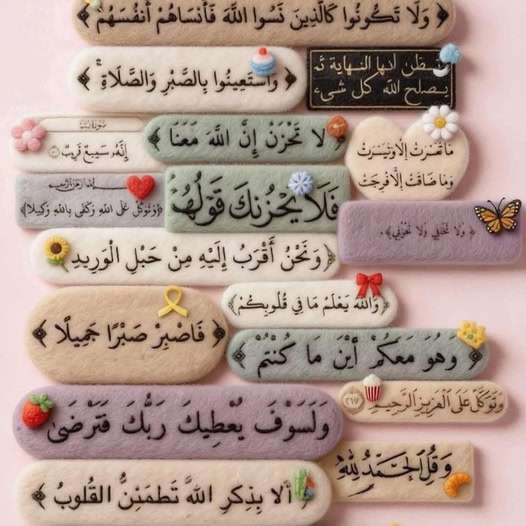 ﴿ وَلَا تَكُونُوا كَالَّذِينَ نَسُوا اللَّهَ فَأَنسَاهُمْ أَنفُسَهُمْ ﴾
﴿ وَاسْتَعِينُوا بِالصَّبْرِ وَالصَّلَاةِ ﴾
أنها النهاية ثم
يصلح الله كل شيء
إِنَّهُ سَمِيعٌ قَرِيبٌ
﴿ لَا تَحْزَنْ إِنَّ اللَّهَ مَعَنَا ﴾
وَمَا ضَاقَتْ إِلَّا فُرِجَتْ
﴿وَتَوَكَّلْ عَلَى اللَّهِ وَكَفَى بِاللَّهِ وَكِيلًا﴾
فَلَا يَحْزُنكَ قَوْلُهُمْ
﴿ وَلَا تَخَافِي وَلَا تَحْزَنِي ﴾
﴿ وَنَحْنُ أَقْرَبُ إِلَيْهِ مِنْ حَبْلِ الْوَرِيدِ ﴾
﴿وَاللَّهُ يَعْلَمُ مَا فِي قُلُوبِكُمْ﴾
﴿ فَاصْبِرْ صَبْرًا جَمِيلًا ﴾
﴿ وَهُوَ مَعَكُمْ أَيْنَ مَا كُنتُمْ ﴾
وَتَوَكَّلْ عَلَى الْعَزِيزِ الرَّحِيمِ ٢١٧
وَلَسَوْفَ يُعْطِيكَ رَبُّكَ فَتَرْضَىٰ
وَقُلِ الْحَمْدُ لِلَّهِ
﴿ أَلَا بِذِكْرِ اللَّهِ تَطْمَئِنُّ الْقُلُوبُ ﴾